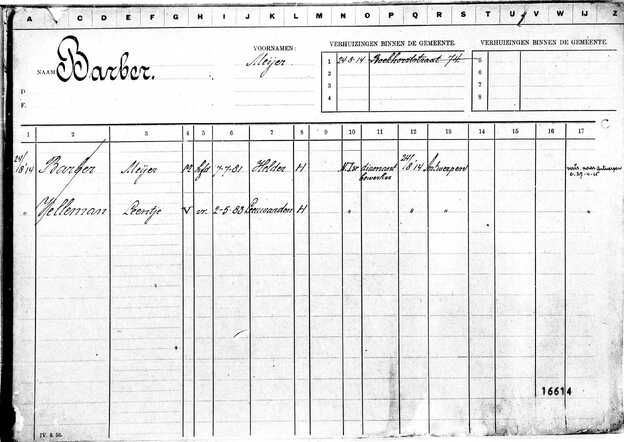 A B C D E F G H I J K L M N O P Q R S T U V W X Y Z
NAAM Barber.
D
F.
VOORNAMEN:
Meijer
VERHUIZINGEN BINNEN DE GEMEENTE.
1 24-8-14 Boekhorststraat 74
2
3
4
VERHUIZINGEN BINNEN DE GEMEENTE.
5
6
7
8
1 2 3 4 5 6 7 8 9 10 11 12 13 14 15 16 17
24/8 14 Barber Meijer M hfd 7-7-81 Helder H N.Isr. diamant 24/8 14 Antwerpen
bewerker
" Velleman Leentje V vr. 2-5-83 Leeuwarden H " " " " "
16614
IV. 8. 50.